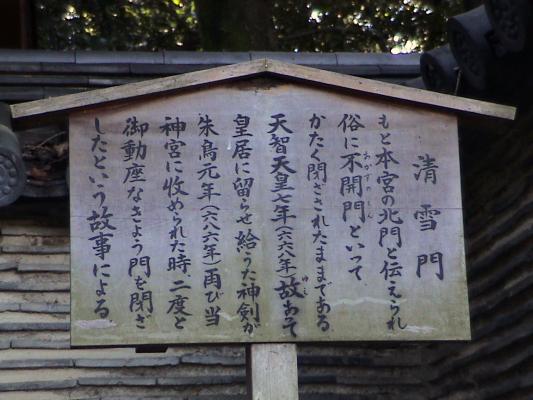 清雪門
もと本宮の北門と伝えられ
俗に不開門といって
あかずのもん
かたく閉ざされたままである
天智天皇七年（六六八年）故あって
ゆえ
皇居に留らせ給うた神剣が
朱鳥元年（六八六年）再び当
神宮に收められた時、二度と
御動座なきよう門を閉ざ
したという故事による。